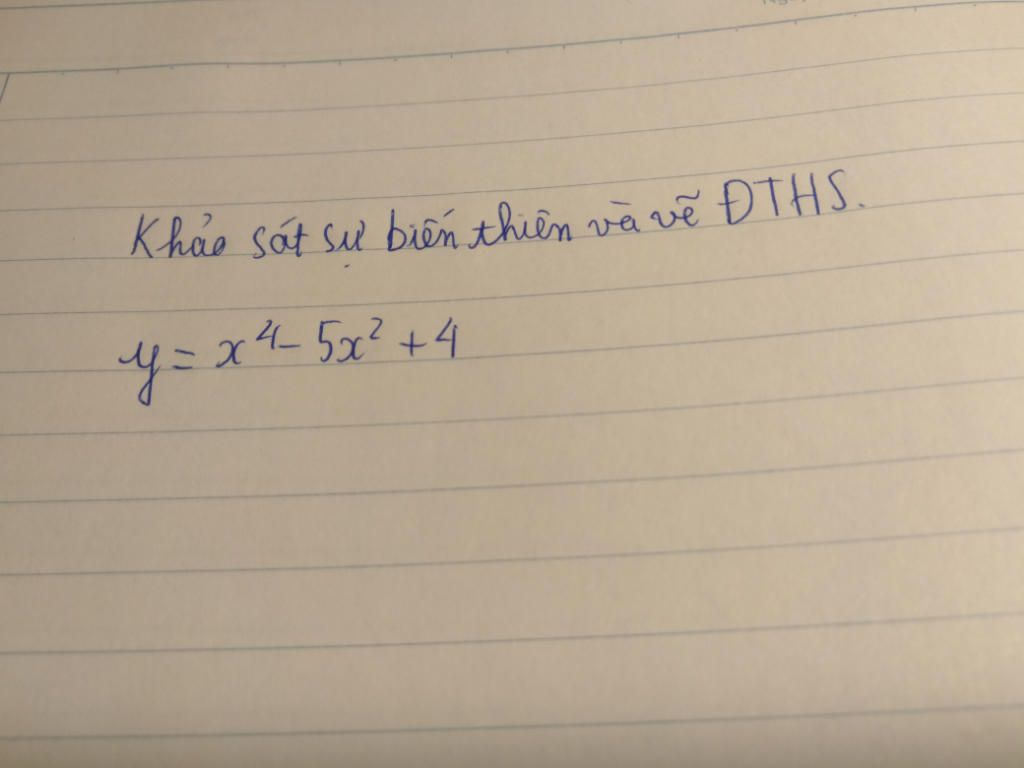 Khảo sát sự biến thiên và vẽ ĐTHS.
y = x⁴ - 5x² + 4